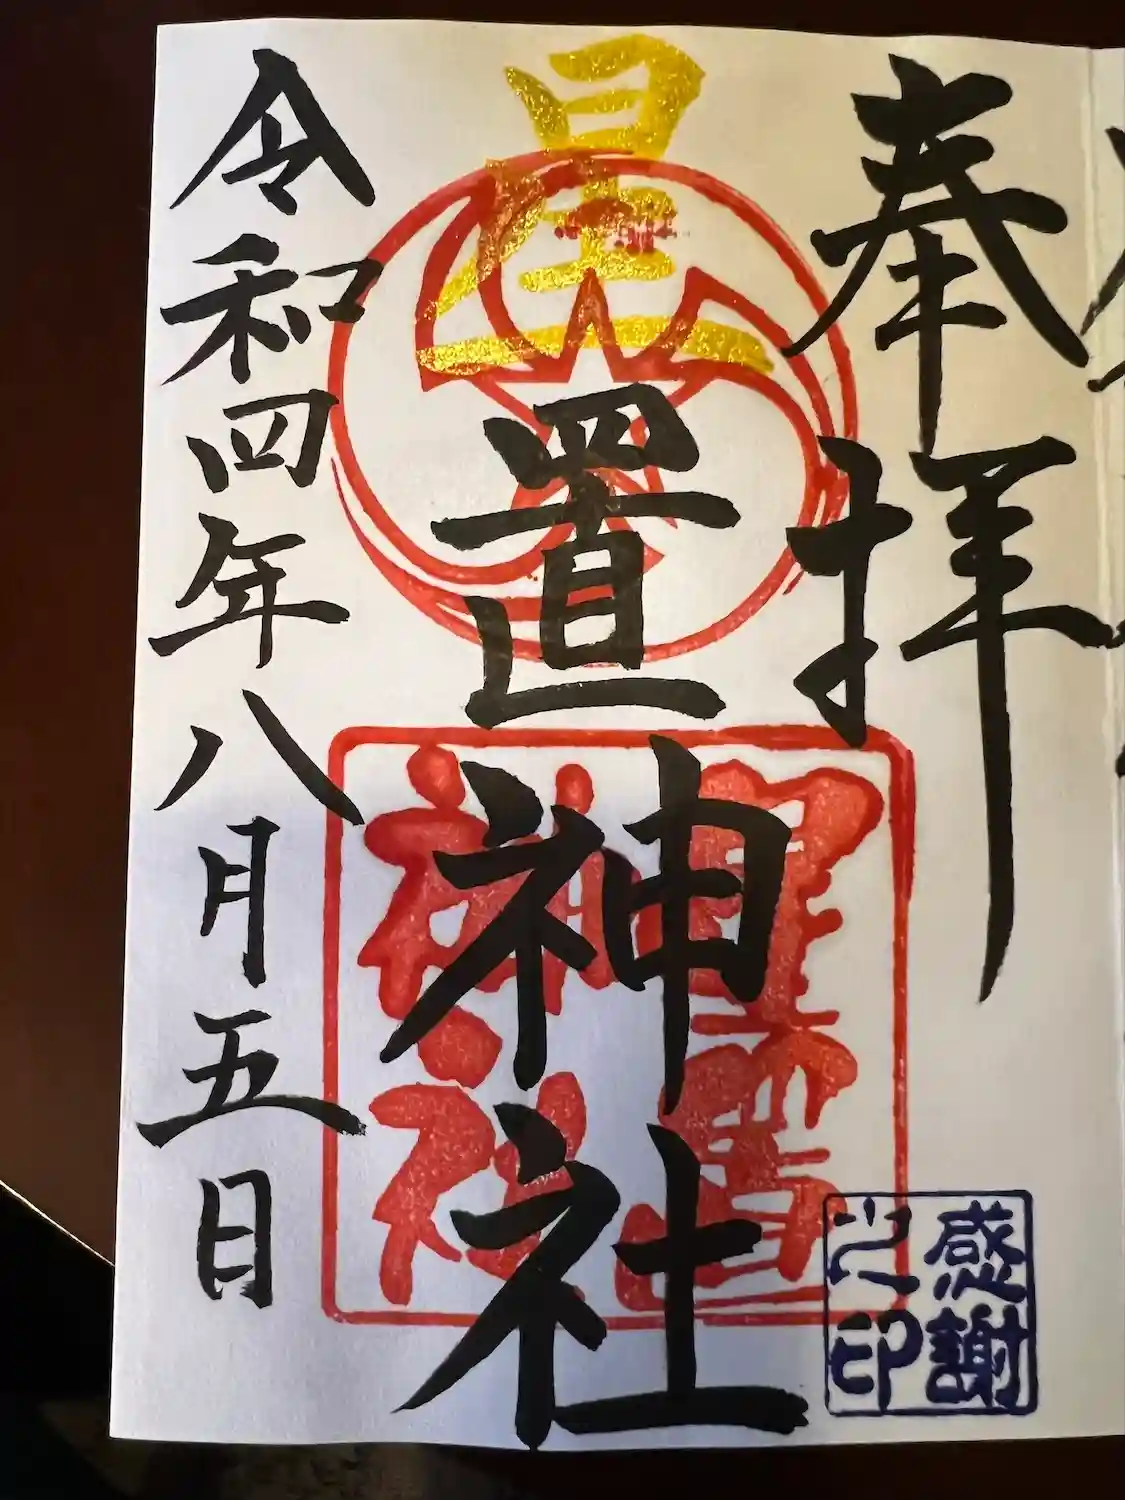 奉拝
星置神社
星置神社
令和四年八月五日
感謝
之印